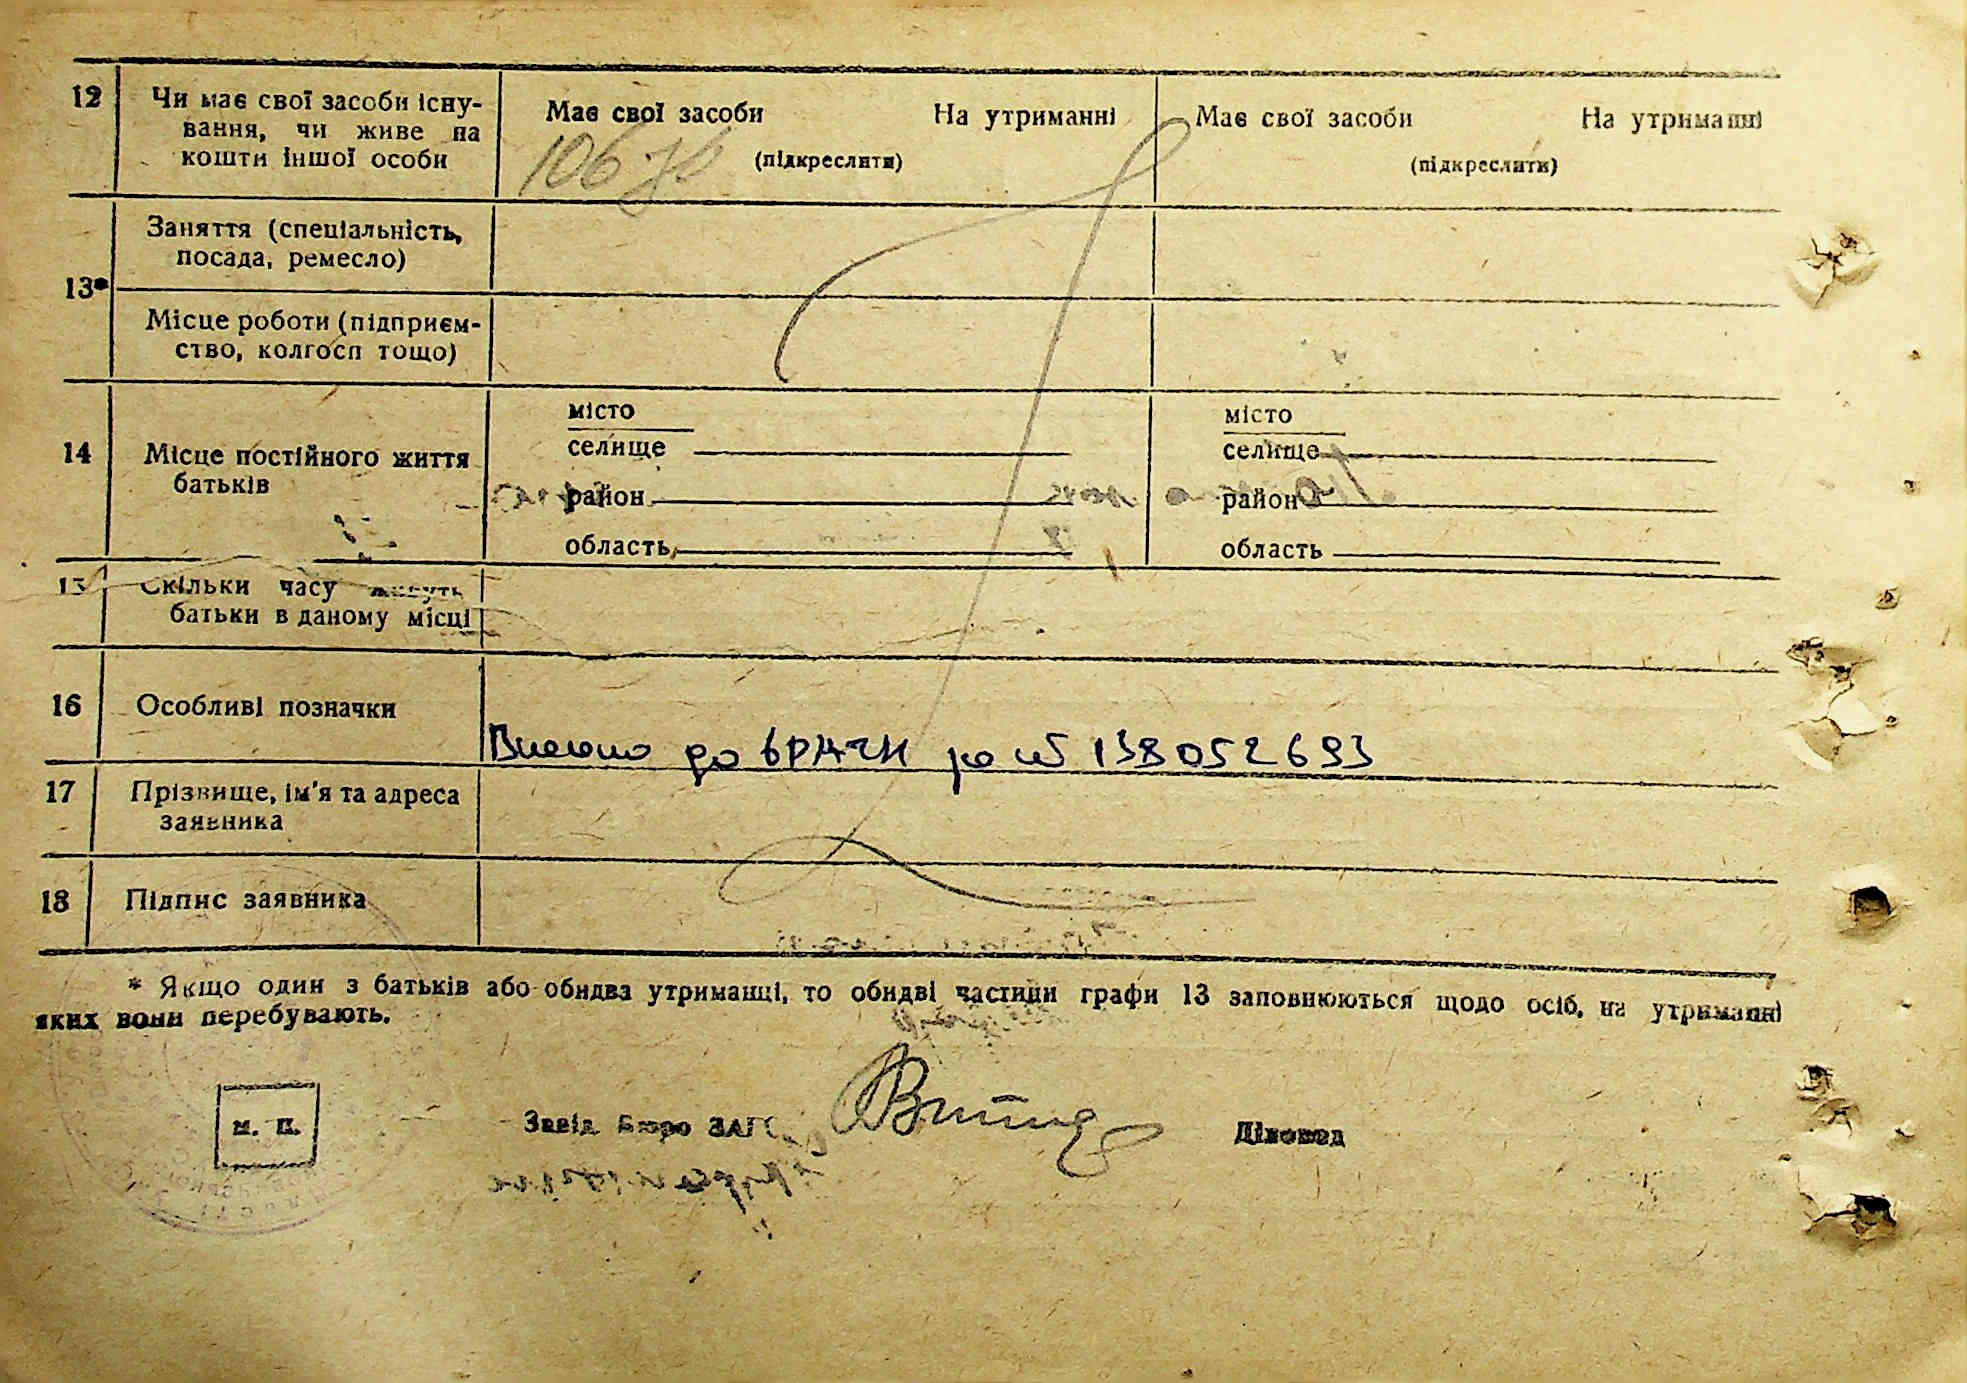 12 Чи має свої засоби існу-
вання, чи живе на
кошти іншої особи
Має свої засоби На утриманні
(підкреслити)
106
Має свої засоби На утриманні
(підкреслити)
13*
Заняття (спеціальність,
посада, ремесло)
Місце роботи (підприєм-
ство, колгосп тощо)
14 Місце постійного життя
батьків
місто
селище
район
область
місто
селище
район
область
15 Скільки часу живуть
батьки в даному місці
16 Особливі позначки
Внесено до ДРАЦСГ за № 138052693
17 Прізвище, ім'я та адреса
заявника
18 Підпис заявника
* Якщо один з батьків або обидва утриманці, то обидві частини графи 13 заповнюються щодо осіб, на утриманні
яких вони перебувають.
М. П.
Завід. Бюро ЗАГС
Діловод